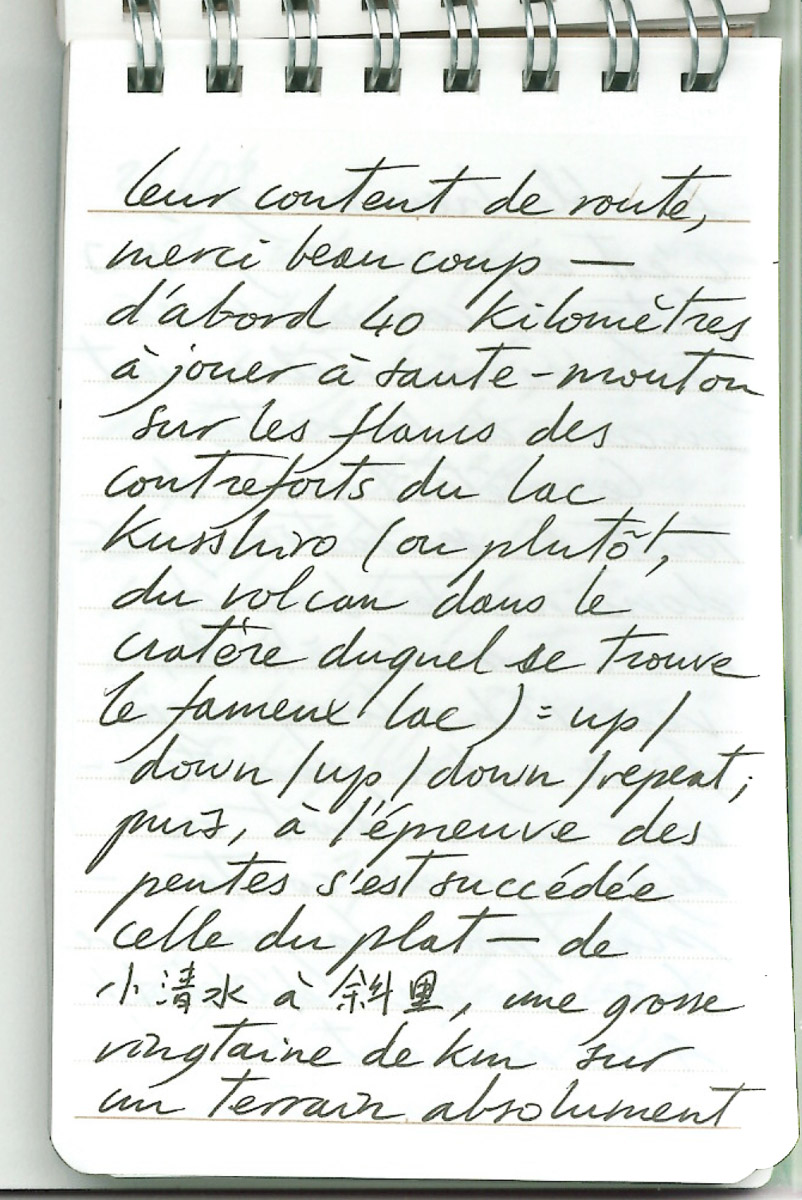 leur content de route,
merci beaucoup —
d'abord 40 kilomètres
à jouer à saute-mouton
sur les flancs des
contreforts du lac
Kusshiro (ou plutôt,
du volcan dans le
cratère duquel se trouve
le fameux lac) : up/
down/up/down/repeat;
puis, à l'épreuve des
pentes s'est succédée
celle du plat — de
小清水 à 斜里, une grosse
vingtaine de km sur
un terrain absolument